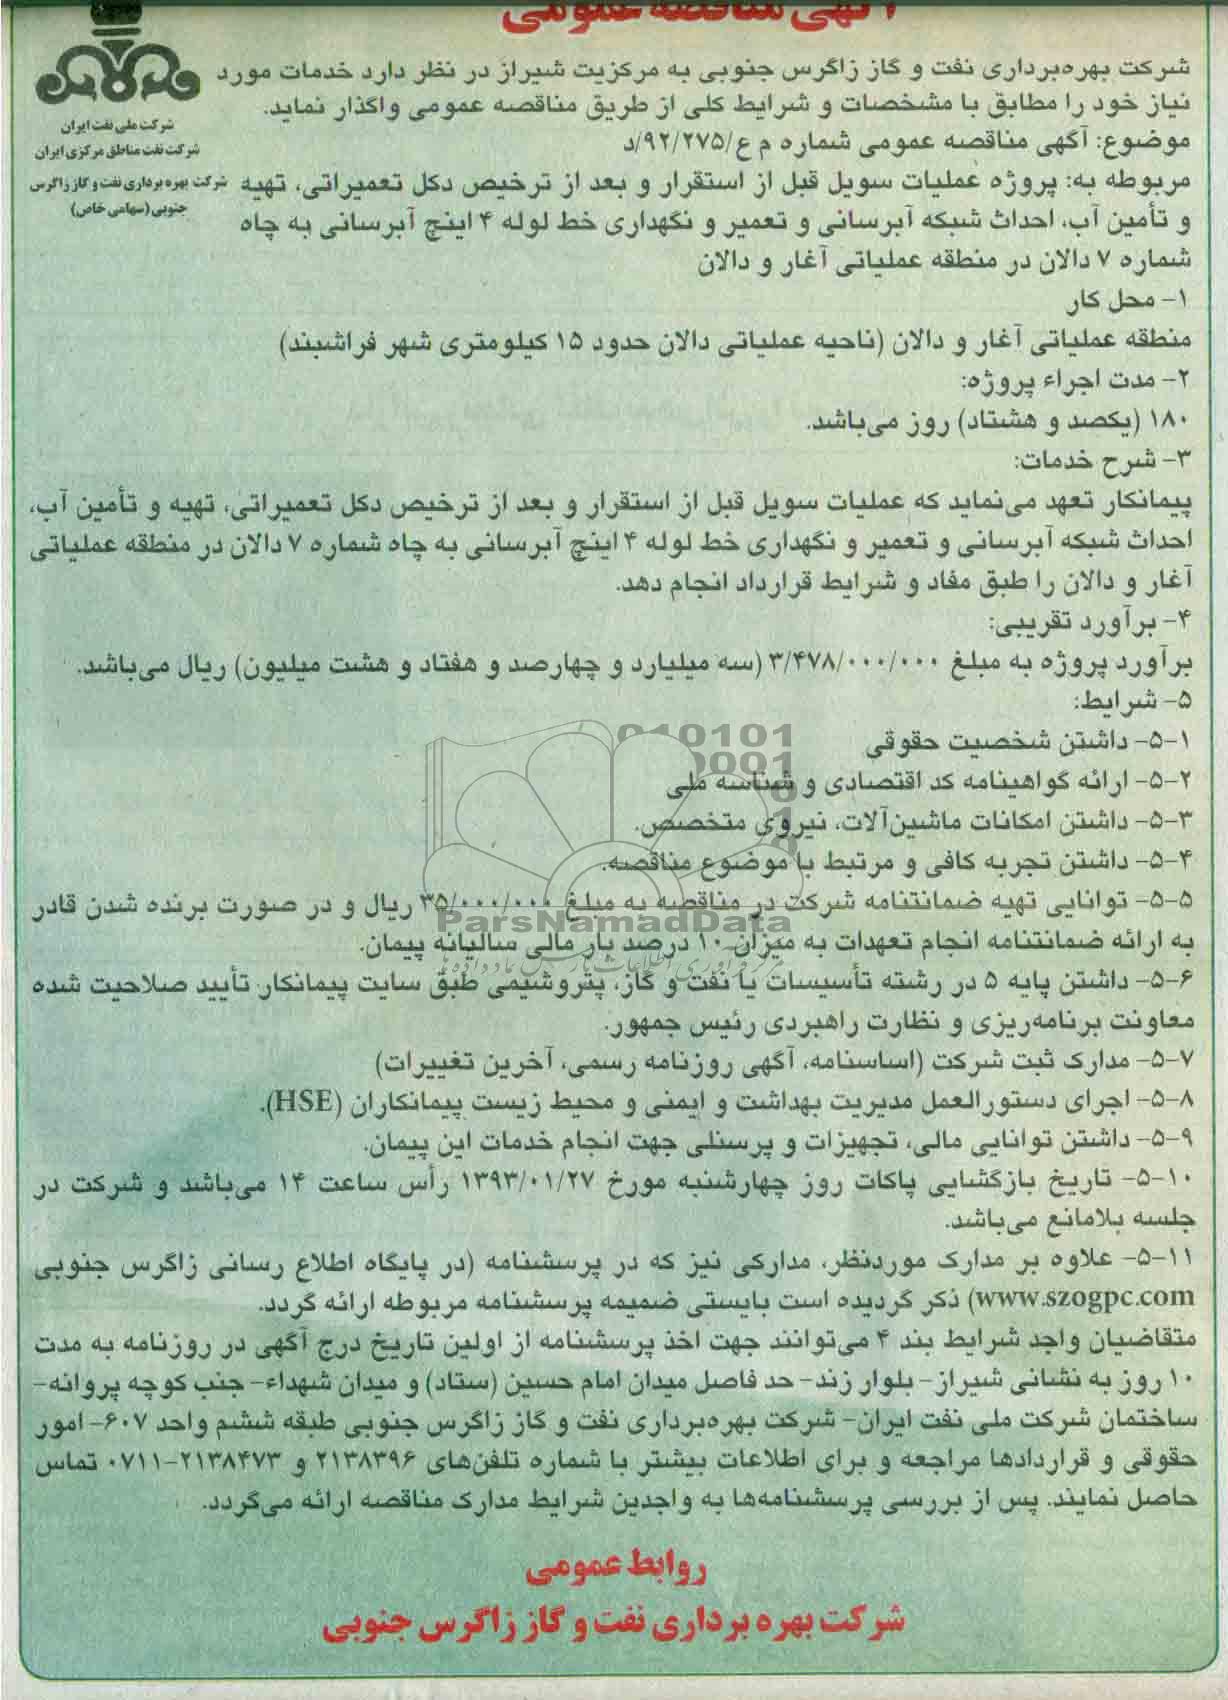 آگهی مناقصه عمومی
شرکت ملی نفت ایران
شرکت نفت مناطق مرکزی ایران
شرکت بهره برداری نفت و گاز زاگرس
جنوبی (سهامی خاص)
شرکت بهره‌برداری نفت و گاز زاگرس جنوبی به مرکزیت شیراز در نظر دارد خدمات مورد
نیاز خود را مطابق با مشخصات و شرایط کلی از طریق مناقصه عمومی واگذار نماید.
موضوع: آگهی مناقصه عمومی شماره م ع/۹۲/۲۷۵/د
مربوطه به: پروژه عملیات سویل قبل از استقرار و بعد از ترخیص دکل تعمیراتی، تهیه
و تأمین آب، احداث شبکه آبرسانی و تعمیر و نگهداری خط لوله ۴ اینچ آبرسانی به چاه
شماره ۷ دالان در منطقه عملیاتی آغار و دالان
۱- محل کار
منطقه عملیاتی آغار و دالان (ناحیه عملیاتی دالان حدود ۱۵ کیلومتری شهر فراشبند)
۲- مدت اجراء پروژه:
۱۸۰ (یکصد و هشتاد) روز می‌باشد.
۳- شرح خدمات:
پیمانکار تعهد می‌نماید که عملیات سویل قبل از استقرار و بعد از ترخیص دکل تعمیراتی، تهیه و تأمین آب،
احداث شبکه آبرسانی و تعمیر و نگهداری خط لوله ۴ اینچ آبرسانی به چاه شماره ۷ دالان در منطقه عملیاتی
آغار و دالان را طبق مفاد و شرایط قرارداد انجام دهد.
۴- برآورد تقریبی:
برآورد پروژه به مبلغ ۳/۴۷۸/۰۰۰/۰۰۰ (سه میلیارد و چهارصد و هفتاد و هشت میلیون) ریال می‌باشد.
۵- شرایط:
۵-۱- داشتن شخصیت حقوقی
۵-۲- ارائه گواهینامه کد اقتصادی و شناسه ملی
۵-۳- داشتن امکانات ماشین‌آلات، نیروی متخصص.
۵-۴- داشتن تجربه کافی و مرتبط با موضوع مناقصه.
۵-۵- توانایی تهیه ضمانتنامه شرکت در مناقصه به مبلغ ۳۵/۰۰۰/۰۰۰ ریال و در صورت برنده شدن قادر
به ارائه ضمانتنامه انجام تعهدات به میزان ۱۰ درصد بار مالی سالیانه پیمان.
۵-۶- داشتن پایه ۵ در رشته تأسیسات یا نفت و گاز، پتروشیمی طبق سایت پیمانکار تأیید صلاحیت شده
معاونت برنامه‌ریزی و نظارت راهبردی رئیس جمهور.
۵-۷- مدارک ثبت شرکت (اساسنامه، آگهی روزنامه رسمی، آخرین تغییرات)
۵-۸- اجرای دستورالعمل مدیریت بهداشت و ایمنی و محیط زیست پیمانکاران (HSE).
۵-۹- داشتن توانایی مالی، تجهیزات و پرسنلی جهت انجام خدمات این پیمان.
۵-۱۰- تاریخ بازگشایی پاکات روز چهارشنبه مورخ ۱۳۹۳/۰۱/۲۷ رأس ساعت ۱۴ می‌باشد و شرکت در
جلسه بلامانع می‌باشد.
۵-۱۱- علاوه بر مدارک موردنظر، مدارکی نیز که در پرسشنامه (در پایگاه اطلاع رسانی زاگرس جنوبی
www.szogpc.com) ذکر گردیده است بایستی ضمیمه پرسشنامه مربوطه ارائه گردد.
متقاضیان واجد شرایط بند ۴ می‌توانند جهت اخذ پرسشنامه از اولین تاریخ درج آگهی در روزنامه به مدت
۱۰ روز به نشانی شیراز- بلوار زند- حد فاصل میدان امام حسین (ستاد) و میدان شهداء- جنب کوچه پروانه-
ساختمان شرکت ملی نفت ایران- شرکت بهره‌برداری نفت و گاز زاگرس جنوبی طبقه ششم واحد ۶۰۷- امور
حقوقی و قراردادها مراجعه و برای اطلاعات بیشتر با شماره تلفن‌های ۲۱۳۸۳۹۶ و ۲۱۳۸۴۷۳-۰۷۱۱ تماس
حاصل نمایند. پس از بررسی پرسشنامه‌ها به واجدین شرایط مدارک مناقصه ارائه می‌گردد.
روابط عمومی
شرکت بهره برداری نفت و گاز زاگرس جنوبی
ParsNamadData